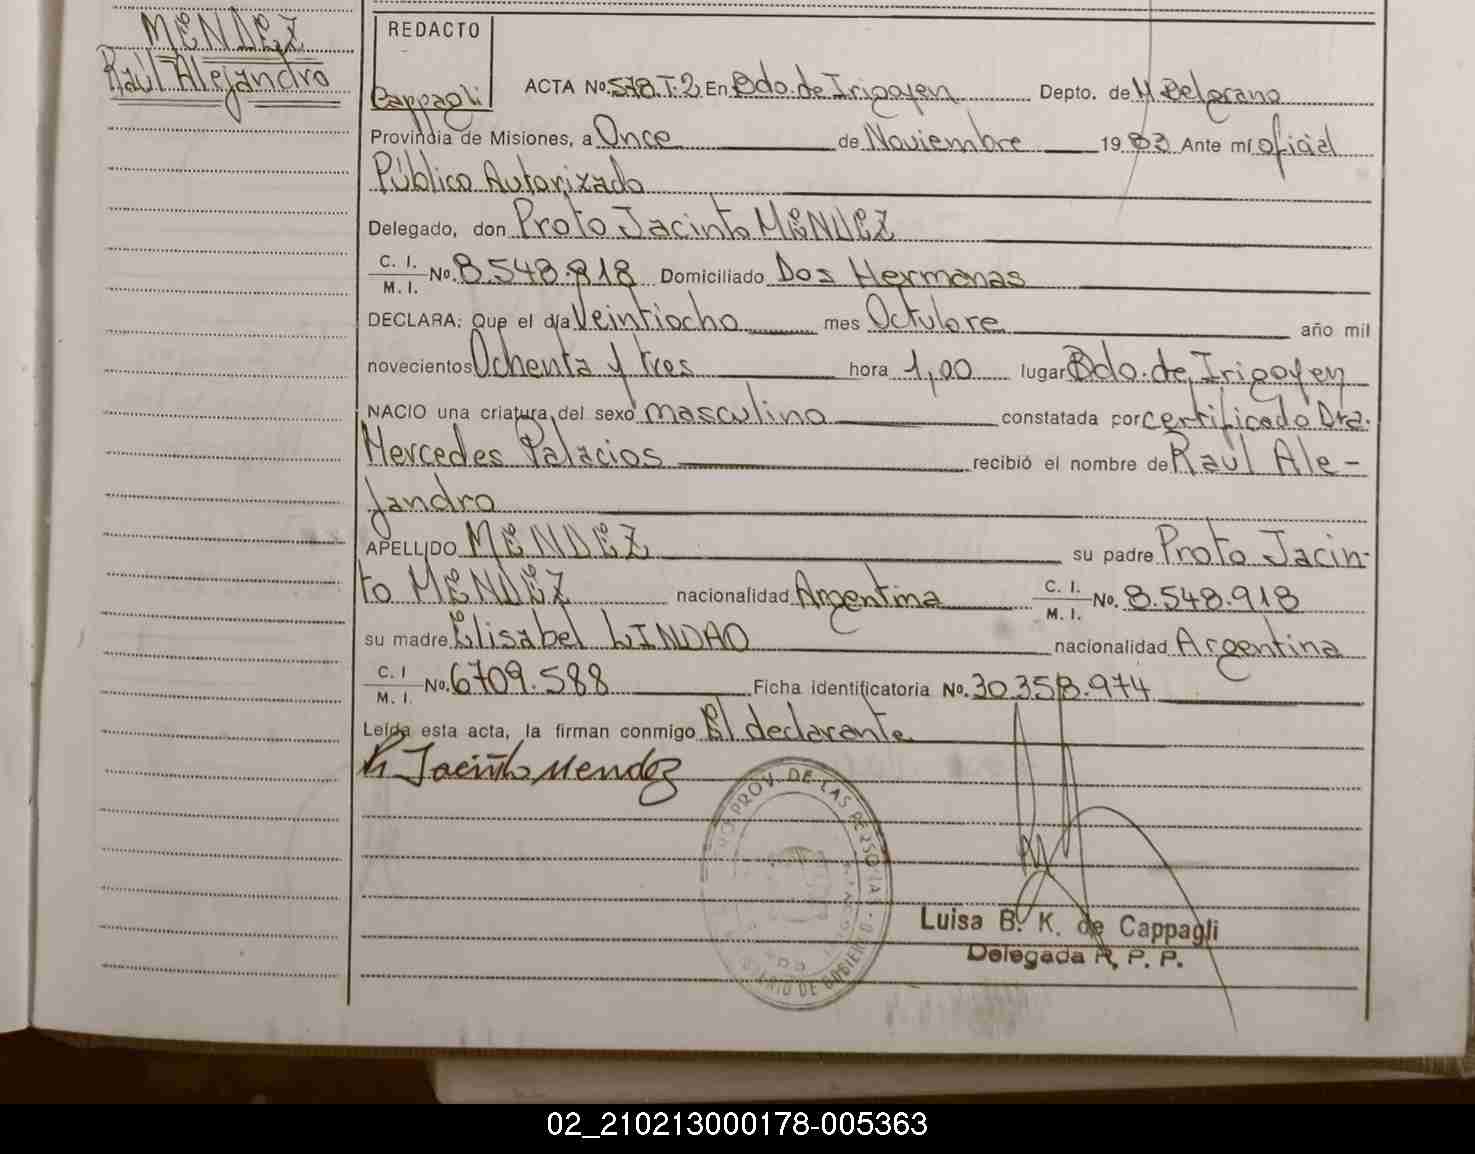 MENDEZ
Raúl Alejandro
REDACTO
Cappagli
ACTA No. 578.T.2 En Bdo. de Irigoyen Depto. de M. Belgrano
Provincia de Misiones, a Once de Noviembre 1983 Ante mi oficial
Público Autorizado
Delegado, don Proto Jacinto MENDEZ
C. I.
M. I. No. 8.548.918 Domiciliado Dos Hermanas
DECLARA: Que el día Veintiocho mes Octubre año mil
novecientos Ochenta y tres hora 1,00 lugar Bdo. de Irigoyen
NACIO una criatura del sexo masculino constatada por certificado Dra.
Mercedes Palacios recibió el nombre de Raúl Ale-
jandro
APELLIDO MENDEZ su padre Proto Jacin-
to MENDEZ nacionalidad Argentina C. I. M. I. No. 8.548.918
su madre Elisabel LINDAO nacionalidad Argentina
C. I
M. I. No. 6709.588 Ficha identificatoria No. 30.358.974
Leída esta acta, la firman conmigo El declarante
P. Jacinto Mendez
PROV. DE LAS PERSONAS
DE GOBIERNO
Luisa B. K. de Cappagli
Delegada R. P. P.
02_210213000178-005363